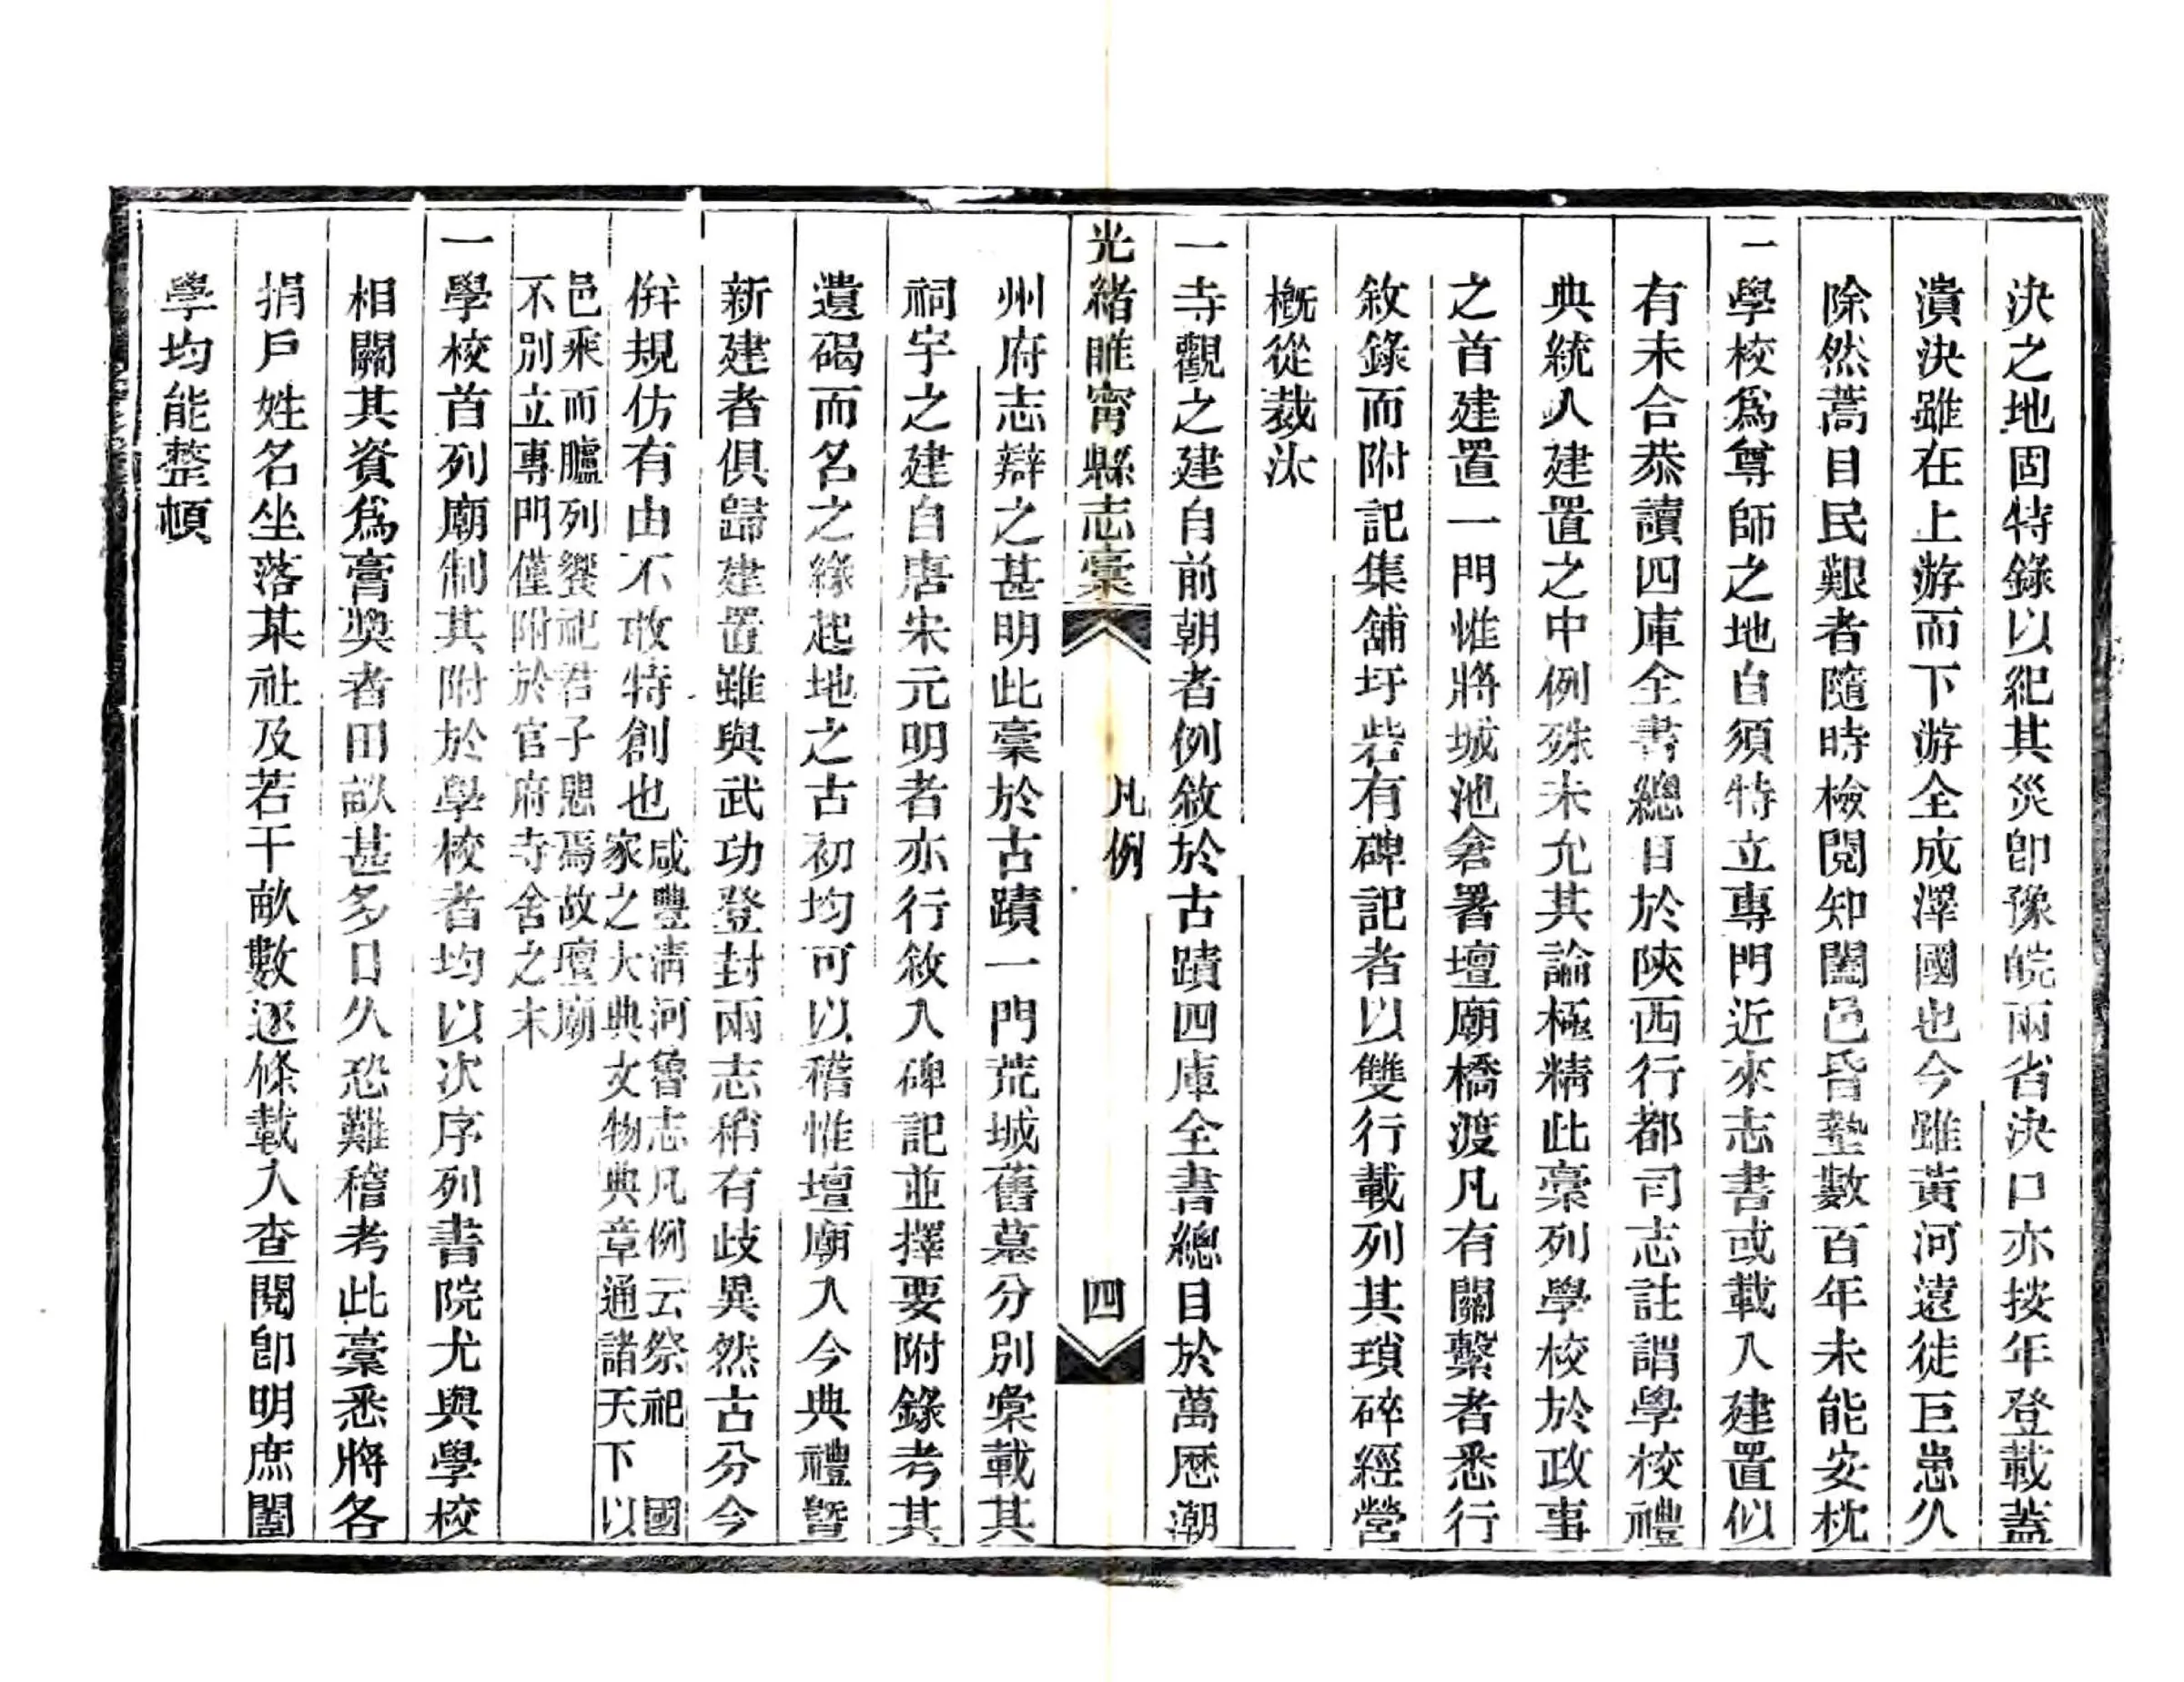 決之地固特錄以紀其災卽豫皖兩省決口亦按年登載蓋
潰決雖在上游而下游全成澤國也今雖黃河遠徙巨患久
除然蒿目民艱者隨時檢閱知闔邑昏墊數百年未能安枕
一學校爲尊師之地自須特立專門近來志書或載入建置似
有未合恭讀四庫全書總目於陝西行都司志註謂學校禮
典統入建置之中例殊未允其論極精此稾列學校於政事
之首建置一門惟將城池倉署壇廟橋渡凡有關繫者悉行
敘錄而附記集舖圩砦有碑記者以雙行載列其瑣碎經營
槪從裁汰
一寺觀之建自前朝者例敘於古蹟四庫全書總目於萬厯潮
光緒睢甯縣志稾
凡例
四
州府志辯之甚明此稾於古蹟一門荒城舊墓分別彙載其
祠宇之建自唐宋元明者亦行敘入碑記並擇要附錄考其
遺碣而名之緣起地之古初均可以稽惟壇廟入今典禮曁
新建者俱歸建置雖與武功登封兩志稍有歧異然古分今
倂規仿有由不敢特創也咸豐淸河魯志凡例云祭祀 國
家之大典文物典章通諸天下 以
邑乘而臚列饗祀君子思焉故壇廟
不別立專門僅附於官府寺舍之末
一學校首列廟制其附於學校者均以次序列書院尤與學校
相關其資爲膏奬者田畝甚多日久恐難稽考此稾悉將各
捐戶姓名坐落某社及若干畝數逐條載入查閱卽明庶闔
學均能整頓